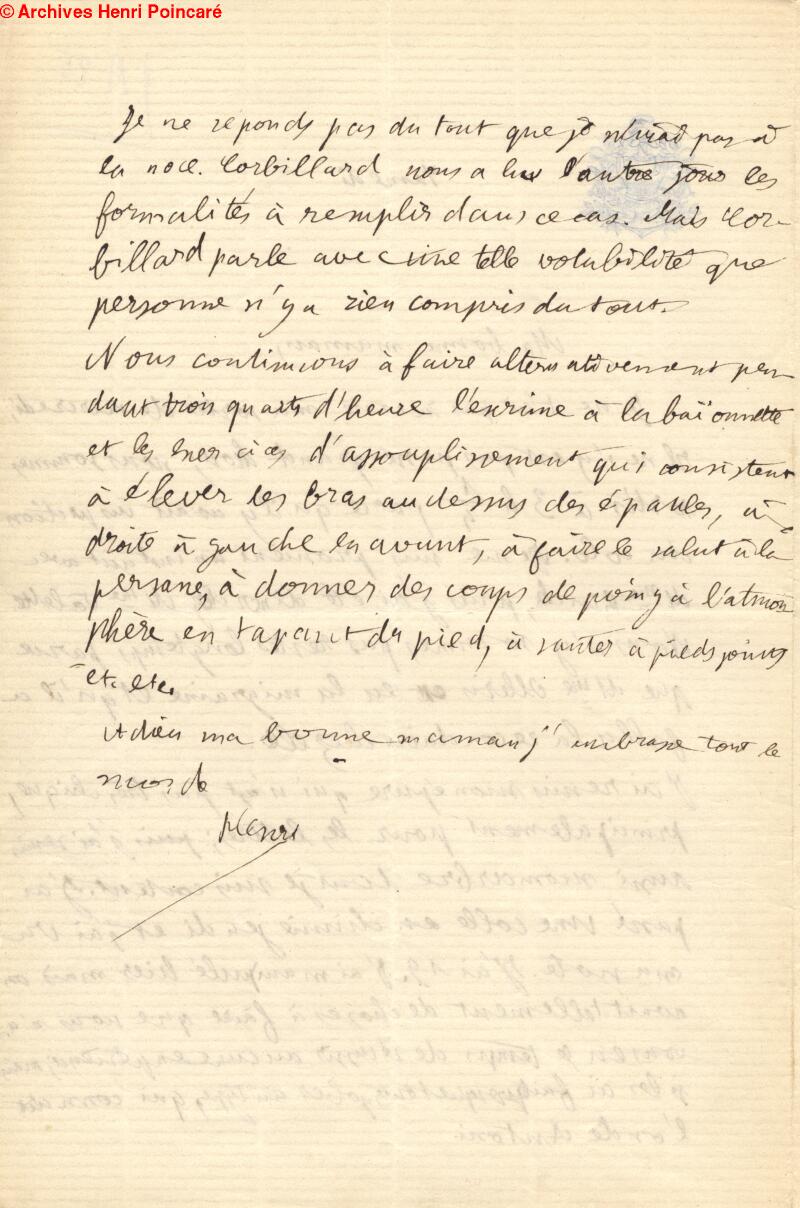 © Archives Henri Poincaré
Je ne reponds pas du tout que je n'irai pas à
la noce. Corbillard nous a lu l'autre jour les
formalités à remplir dans ce cas. Mais Cor-
billard parle avec une telle volubilité que
personne n'y a rien compris du tout.
Nous continuons à faire alternativement pen-
dant trois quarts d'heure l'escrime à la baïonnette
et les exercices d'assouplissement qui consistent
à élever les bras au dessus des épaules, à
droite à gauche en avant, à faire le salut à la
persane, à donner des coups de poing à l'atmos
phère en tapant du pied, à sauter à pieds joints
etc. etc.
Adieu ma bonne maman j'embrasse tout le
monde
Henri